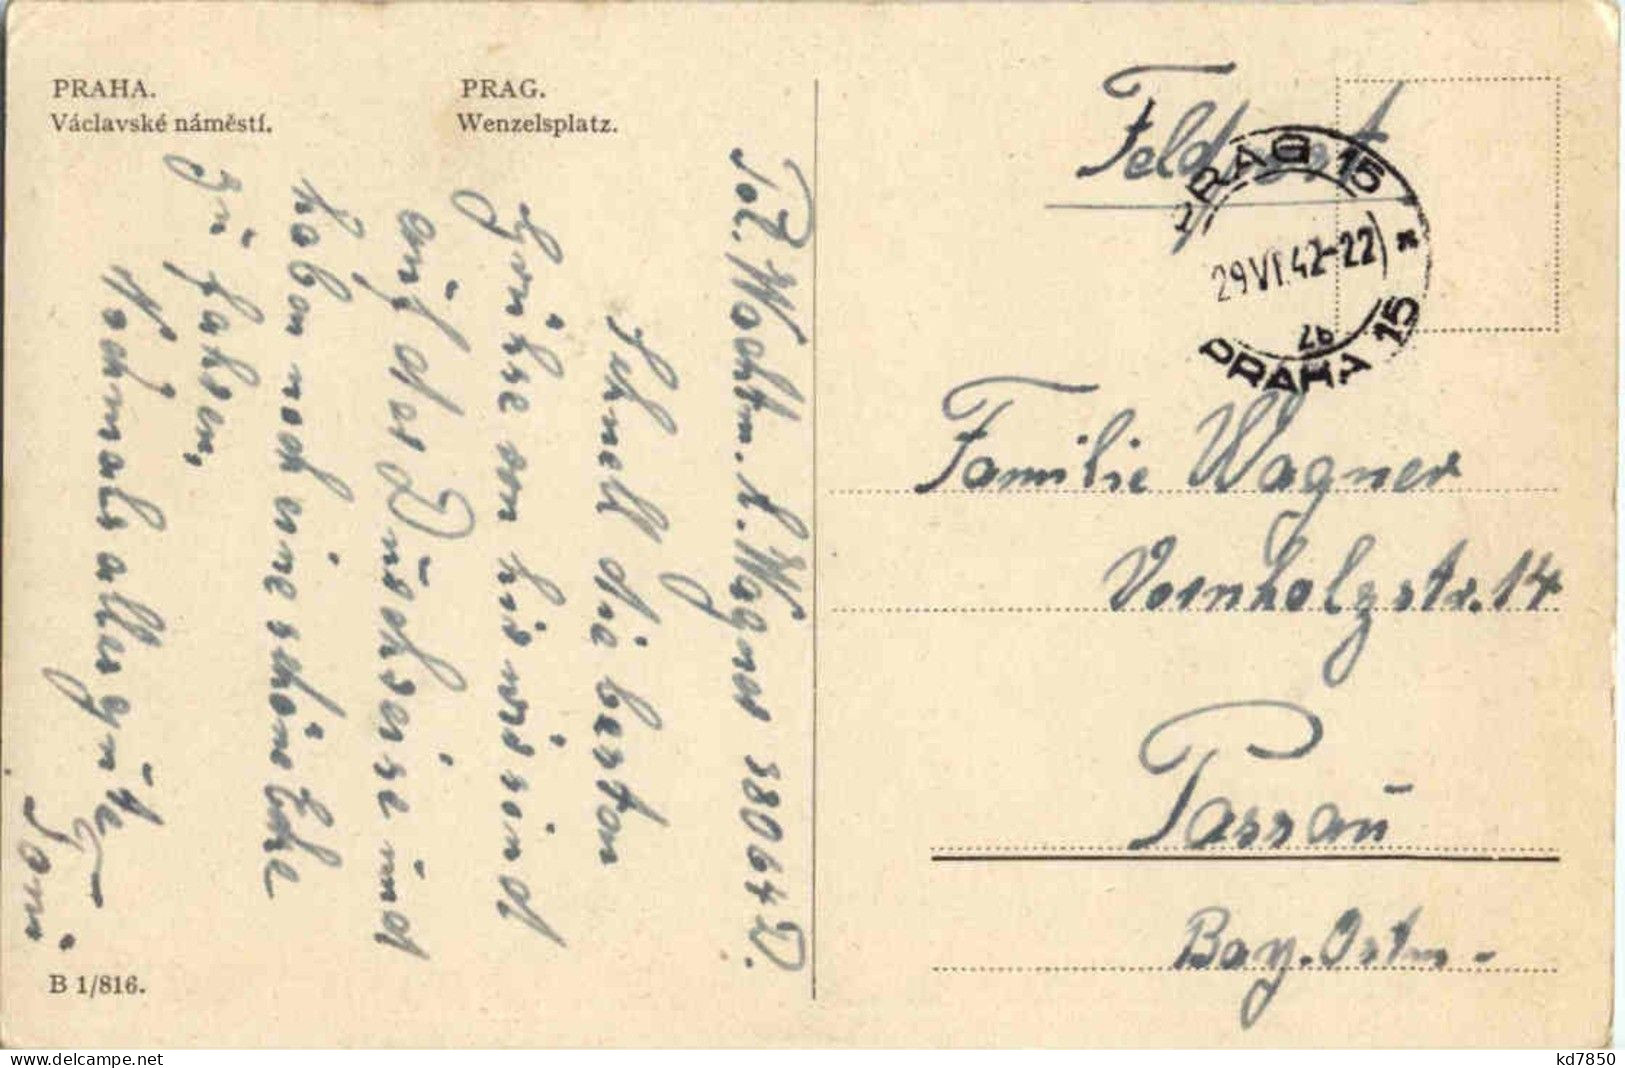 PRAHA.
Václavské náměstí.
PRAG.
Wenzelsplatz.
Feldpost
PRAG 15
29 VI. 42-22
2b
PRAHA 15
Familie Wagner
Vornholzstr. 14
Passau
Bay. Ostm-
Pol. Wachtm. L. Wagner 38064 D.
Schnell die besten
Grüsse von hir wir sind
auf der Durchreise und
haben noch eine schöne Ecke
Zu fahren,
Nochmals alles gute
Toni
B 1/816.
kd7850